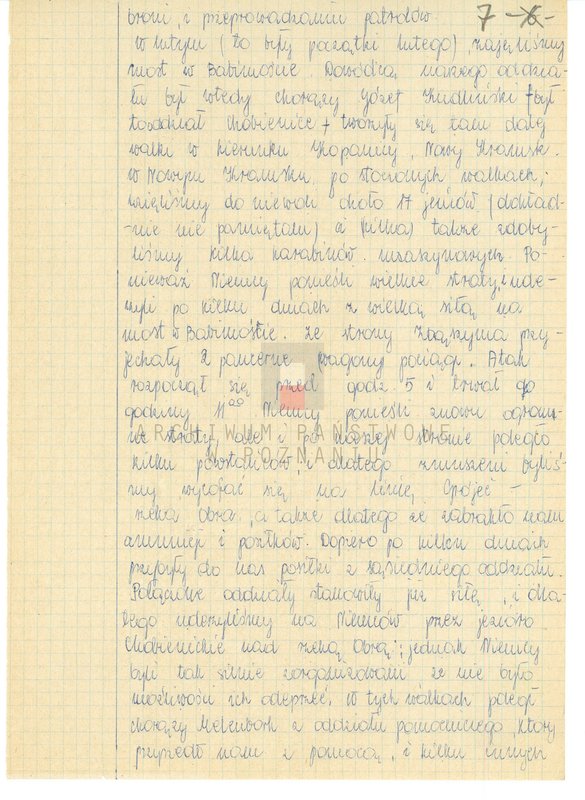 broni, i przeprowadzaniu patroli. 7 -6-
W lutym (to były początki lutego) zajęliśmy
most w Babimoście. Dowódcą naszego oddzia-
łu był wtedy chorąży Józef Kudliński + był
to oddział Chobienice + tworzyły się tam dalej
walki w kierunku Kopanicy, Nowy Kramsk.
W Nowym Kramsku, po stoczonych walkach,
wzięliśmy do niewoli około 17 jeńców (dokład-
-nie nie pamiętam) i kilka) także zdoby-
liśmy kilka karabinów maszynowych. Po-
nieważ Niemcy ponieśli wielkie straty, ude-
rzyli po kilku dniach z wielką siłą na
most w Babimoście. Ze strony Zbąszynia przy-
jechały 2 pancerne wagony pociągi. Atak
rozpoczął się przed godz. 5 i trwał do
godziny 11⁰⁰. Niemcy ponieśli znowu ogrom-
ne straty, ale i po naszej stronie poległo
ARCHIWUM PAŃSTWOWE
W POZNANIU
kilku powstańców, i dlatego zmuszeni byliś-
my wycofać się na linię Grójec -
rzeka Obra, a także dlatego że zabrakło nam
amunicji i posiłków. Dopiero po kilku dniach
przybyły do nas posiłki z sąsiedniego oddziału.
Połączone oddziały stanowiły już siłę, i dla-
tego uderzyliśmy na Niemców przez jezioro
Chobienickie nad rzeką Obrą; jednak Niemcy
byli tak silnie zorganizowani że nie było
możliwości ich odeprzeć. W tych walkach poległ
chorąży z oddziału pomocniczego, który
przyszedł nam z pomocą, i kilku innych